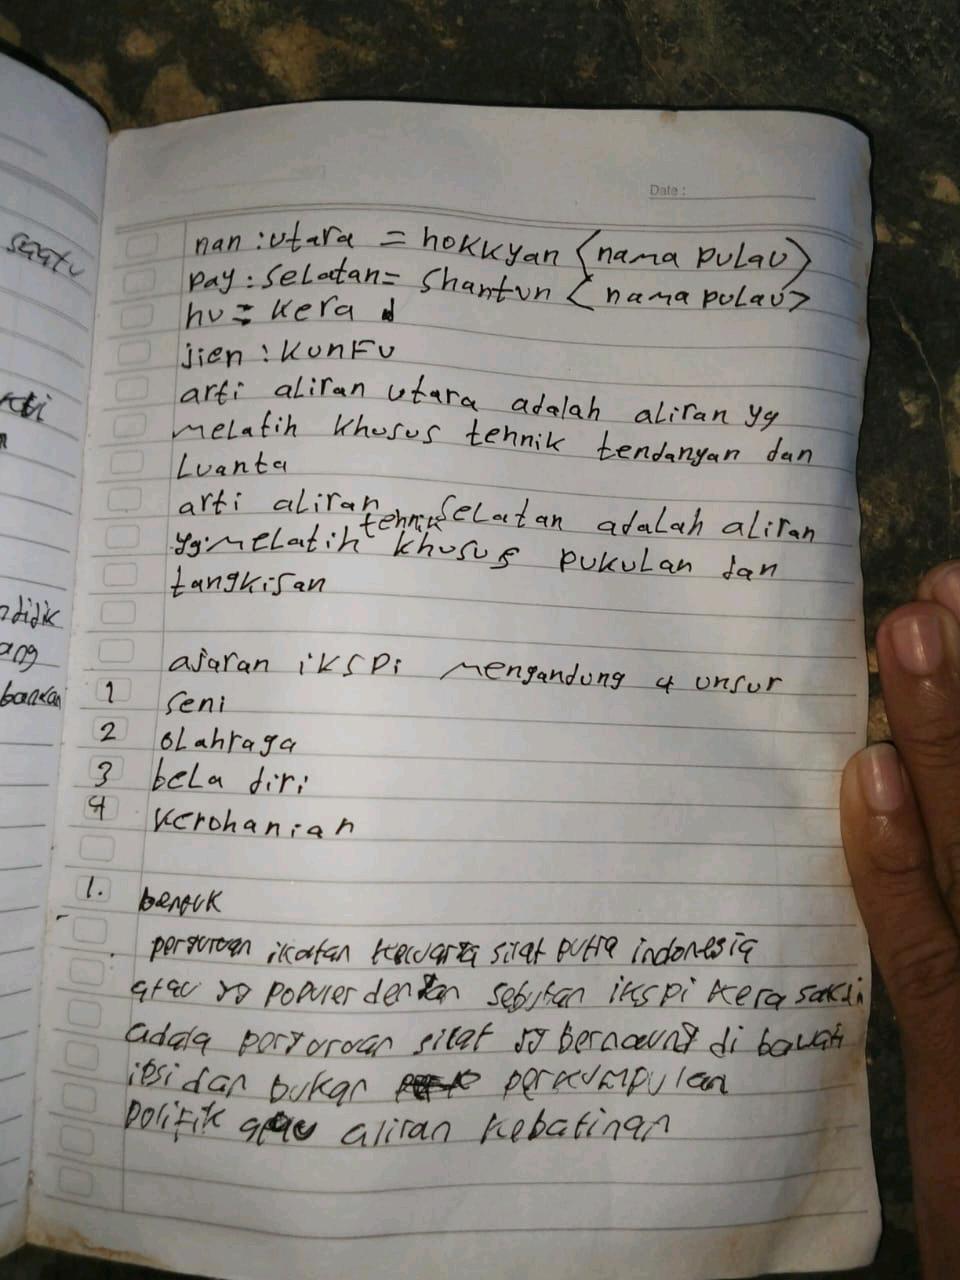 saatu
kti
ndidik
ang
bankan
Date :
nan : utara = hokkyan <nama pulau>
pay : selatan = Shantun <nama pulau>
hu = kera
jien : KunFu
arti aliran utara adalah aliran yg
melatih khusus tehnik tendangan dan
Luanta
arti aliran selatan adalah aliran
yg melatih tehnik khusus pukulan dan
tangkisan
ajaran iKSPi mengandung 4 unsur
1 seni
2 olahraga
3 bela diri
4 kerohanian
1. bentuk
perguruan ikatan keluarga silat putra indonesia
atau yg populer dengan sebutan ikspi kera sakti
adala perguruan silat yg bernaung di bawah
ipsi dan bukan perkumpulan
politik atau aliran kebatinan